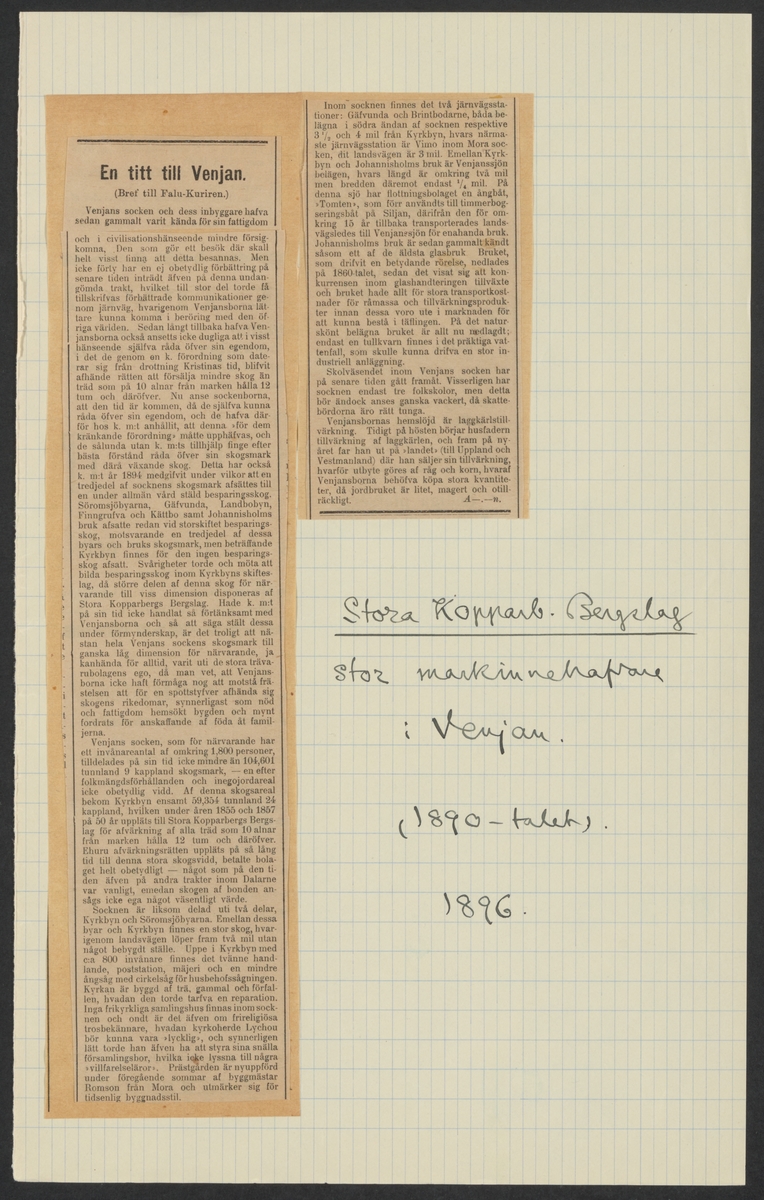 En titt till Venjan.
(Bref till Falu-Kuriren.)
Venjans socken och dess inbyggare hafva
sedan gammalt varit kända för sin fattigdom
och i civilisationshänseende mindre försig-
komna. Den som gör ett besök där skall
helt visst finna att detta besannas. Men
icke förty har en ej obetydlig förbättring på
senare tiden inträdt äfven på denna undan-
gömda trakt, hvilket till stor del torde få
tillskrifvas förbättrade kommunikationer ge-
nom järnväg, hvarigenom Venjansborna lät-
tare kunna komma i beröring med den öf-
riga världen. Sedan långt tillbaka hafva Ven-
jansborna också ansetts icke dugliga att i visst
hänseende själfva råda öfver sin egendom,
i det de genom en k. förordning som date-
rar sig från drottning Kristinas tid, blifvit
afhände rätten att försälja mindre skog än
träd som på 10 alnar från marken hålla 12
tum och däröfver. Nu anse sockenborna,
att den tid är kommen, då de själfva kunna
råda öfver sin egendom, och de hafva där-
för hos k. m:t anhållit, att denna »för dem
kränkande förordning» måtte upphäfvas, och
de sålunda utan k. m:ts tillhjälp finge efter
bästa förstånd råda öfver sin skogsmark
med därå växande skog. Detta har också
k. m:t år 1894 medgifvit under vilkor att en
tredjedel af socknens skogsmark afsättes till
en under allmän vård stäld besparingsskog.
Söromsjöbyarna, Gäfvunda, Landbobyn,
Finngrufva och Kättbo samt Johannisholms
bruk afsatte redan vid storskiftet besparings-
skog, motsvarande en tredjedel af dessa
byars och bruks skogsmark, men beträffande
Kyrkbyn finnes för den ingen besparings-
skog afsatt. Svårigheter torde och möta att
bilda besparingsskog inom Kyrkbyns skiftes-
lag, då större delen af denna skog för när-
varande till viss dimension disponeras af
Stora Kopparbergs Bergslag. Hade k. m:t
på sin tid icke handlat så förtänksamt med
Venjansborna och så att säga stält dessa
under förmynderskap, är det troligt att nä-
stan hela Venjans sockens skogsmark till
ganska låg dimension för närvarande, ja
kanhända för alltid, varit uti de stora träva-
rubolagens ego, då man vet, att Venjans-
borna icke haft förmåga nog att motstå frä-
stelsen att för en spottstyfver afhända sig
skogens rikedomar, synnerligast som nöd
och fattigdom hemsökt bygden och mynt
fordrats för anskaffande af föda åt famil-
jerna.
Venjans socken, som för närvarande har
ett invånareantal af omkring 1,800 personer,
tilldelades på sin tid icke mindre än 104,601
tunnland 9 kappland skogsmark, — en efter
folkmängdsförhållanden och inegojordareal
icke obetydlig vidd. Af denna skogsareal
bekom Kyrkbyn ensamt 59,354 tunnland 24
kappland, hvilken under åren 1855 och 1857
på 50 år uppläts till Stora Kopparbergs Bergs-
lag för afvärkning af alla träd som 10 alnar
från marken hålla 12 tum och däröfver.
Ehuru afvärkningsrätten uppläts på så lång
tid till denna stora skogsvidd, betalte bola-
get helt obetydligt — något som på den ti-
den äfven på andra trakter inom Dalarne
var vanligt, emedan skogen af bonden an-
sågs icke ega något väsentligt värde.
Socknen är liksom delad uti två delar,
Kyrkbyn och Söromsjöbyarna. Emellan dessa
byar och Kyrkbyn finnes en stor skog, hvar-
igenom landsvägen löper fram två mil utan
något bebygdt ställe. Uppe i Kyrkbyn med
c:a 800 invånare finnes det tvänne hand-
lande, poststation, mäjeri och en mindre
ångsåg med cirkelsåg för husbehofssågningen.
Kyrkan är byggd af trä, gammal och förfal-
len, hvadan den torde tarfva en reparation.
Inga frikyrkliga samlingshus finnas inom sock-
nen och ondt är det äfven om frireligiösa
trosbekännare, hvadan kyrkoherde Lychou
bör kunna vara »lycklig», och synnerligen
lätt torde han äfven ha att styra sina snälla
församlingsbor, hvilka icke lyssna till några
»villfarelseläror». Prästgården är nyuppförd
under föregående sommar af byggmästar
Romson från Mora och utmärker sig för
tidsenlig byggnadsstil.
Inom socknen finnes det två järnvägssta-
tioner: Gäfvunda och Brintbodarne, båda be-
lägna i södra ändan af socknen respektive
3 1/2 och 4 mil från Kyrkbyn, hvars närma-
ste järnvägsstation är Vimo inom Mora soc-
ken, dit landsvägen är 3 mil. Emellan Kyrk-
byn och Johannisholms bruk är Venjanssjön
belägen, hvars längd är omkring två mil
men bredden däremot endast 1/4 mil. På
denna sjö har flottningsbolaget en ångbåt,
»Tomten», som förr användts till timmerbog-
seringsbåt på Siljan, därifrån den för om-
kring 15 år tillbaka transporterades lands-
vägsledes till Venjanssjön för enahanda bruk.
Johannisholms bruk är sedan gammalt kändt
såsom ett af de äldsta glasbruk Bruket,
som drifvit en betydande rörelse, nedlades
på 1860-talet, sedan det visat sig att kon-
kurrensen inom glashandteringen tillväxte
och bruket hade allt för stora transportkost-
nader för råmassa och tillvärkningsproduk-
ter innan dessa voro ute i marknaden för
att kunna bestå i täflingen. På det natur-
skönt belägna bruket är allt nu nedlagdt;
endast en tullkvarn finnes i det präktiga vat-
tenfall, som skulle kunna drifva en stor in-
dustriell anläggning.
Skolväsendet inom Venjans socken har
på senare tiden gått framåt. Visserligen har
socknen endast tre folkskolor, men detta
bör ändock anses ganska vackert, då skatte-
bördorna äro rätt tunga.
Venjansbornas hemslöjd är laggkärlstill-
värkning. Tidigt på hösten börjar husfadern
tillvärkning af laggkärlen, och fram på ny-
året far han ut på »landet» (till Uppland och
Vestmanland) där han säljer sin tillvärkning,
hvarför utbyte göres af råg och korn, hvaraf
Venjansborna behöfva köpa stora kvantite-
ter, då jordbruket är litet, magert och otill-
räckligt. A—.—n.
Stora Kopparb. Bergslag
stor markinnehafvare
i Venjan.
(1890-talet).
1896.